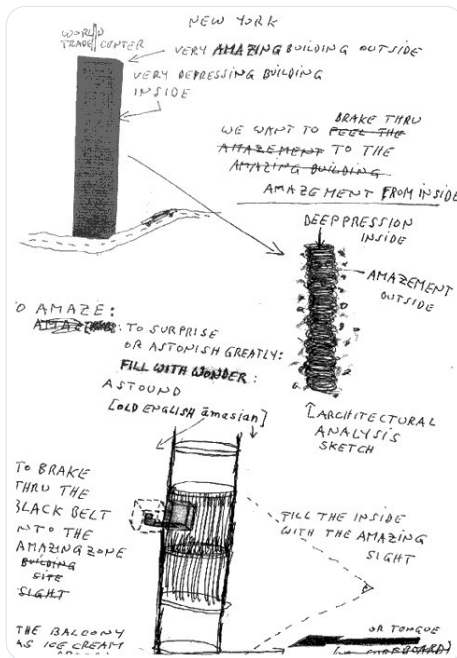 NEW YORK
WORLD
TRADE CENTER
VERY AMAZING BUILDING OUTSIDE
VERY DEPRESSING BUILDING
INSIDE
BRAKE THRU
WE WANT TO FEEL THE
AMAZEMENT TO THE
AMAZING BUILDING
AMAZEMENT FROM INSIDE
DEEPPRESSION
INSIDE
AMAZEMENT
OUTSIDE
O AMAZE:
: TO SURPRISE
OR ASTONISH GREATLY:
FILL WITH WONDER:
ASTOUND
[OLD ENGLISH āmasian]
ARCHITECTURAL
ANALYSIS
SKETCH
TO BRAKE
THRU THE
BLACK BELT
NTO THE
AMAZING ZONE
BUILDING
SITE
SIGHT
FILL THE INSIDE
WITH THE AMAZING
SIGHT
THE BALCONY
AS ICE CREAM
OR TONGUE